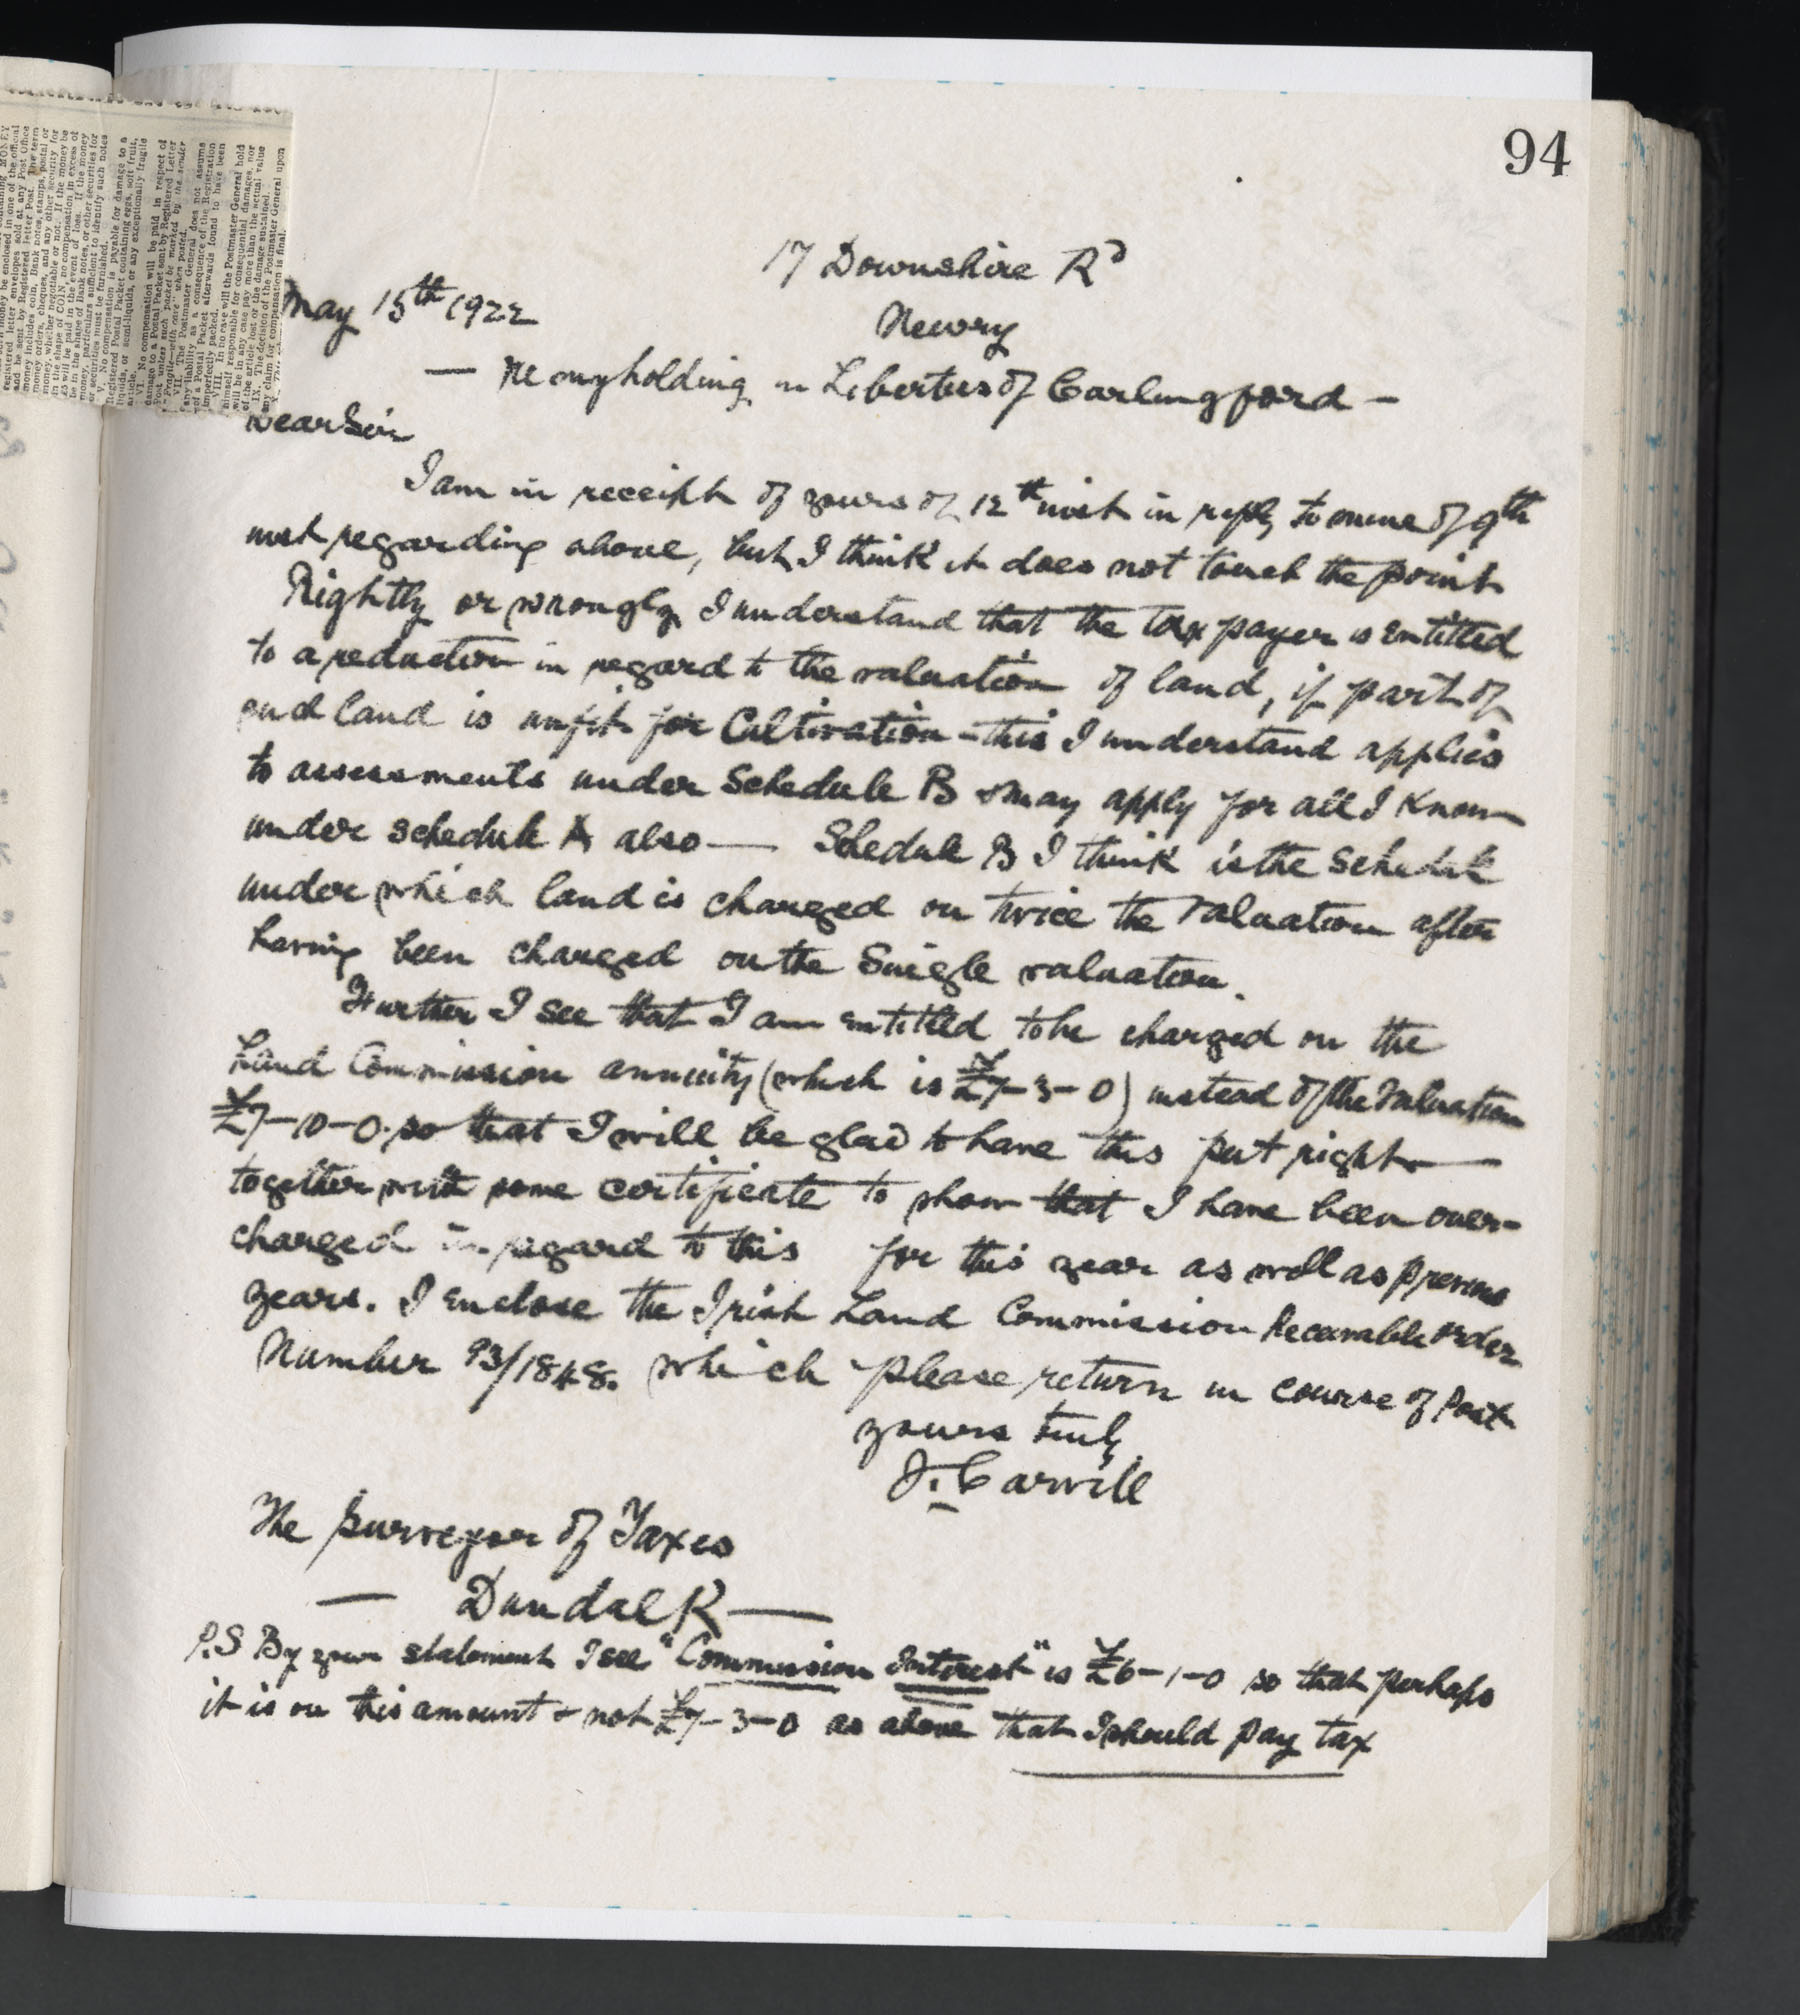 94
17 Downshire Rd
May 15th 1922
Newry
— Re my holding in Liberties of Carlingford —
Dear Sir
I am in receipt of yours of 12th inst in reply to mine of 9th
inst regarding above, but I think it does not touch the point
Rightly or wrongly I understand that the tax payer is entitled
to a reduction in regard to the valuation of land, if part of
said land is unfit for Cultivation – this I understand applies
to assessments under Schedule B & may apply for all I know
under schedule A also — Schedule B I think is the Schedule
under which land is charged on twice the valuation after
having been charged on the Single valuation.
Further I see that I am entitled to be charged on the
Land Commission annuity (which is £7-3-0) instead of the valuation
£7-10-0. so that I will be glad to have this put right —
together with some certificate to show that I have been over-
charged in regard to this for this year as well as previous
years. I enclose the Irish Land Commission Receivable order
Number 93/1848. which please return in course of Post
yours truly
J. Carvill
The Surveyor of Taxes
— Dundalk —
P.S By your statement I see "Commission Interest" is £6-1-0 so that perhaps
it is on this amount & not £7-3-0 as above that I should pay tax
registered letter envelopes sold at any Post Office
and be sent by Registered letter Post. The term
money includes coin, Bank notes, stamps, postal or
money orders, cheques, and any other security for
money, whether negotiable or not. If the money be
in the shape of COIN, no compensation in excess of
£5 will be paid in the event of loss. If the money
be in the shape of Bank notes, or other securities for
money, particulars sufficient to identify such notes
or securities must be furnished.
V. No compensation is payable for damage to a
Registered Postal Packet containing eggs, soft fruit,
liquids, or semi-liquids, or any exceptionally fragile
article.
VI. No compensation will be paid in respect of
damage to a Postal Packet sent by Registered Letter
Post unless such packet be marked by the sender
"Fragile—with care" when posted.
VII. The Postmaster General does not assume
any liability as a consequence of the Registration
of a Postal Packet afterwards found to have been
imperfectly packed.
VIII. In no case will the Postmaster General hold
himself responsible for consequential damages, nor
will he in any case pay more than the actual value
of the article lost or the damage sustained.
IX. The decision of the Postmaster General upon
any claim for compensation is final.